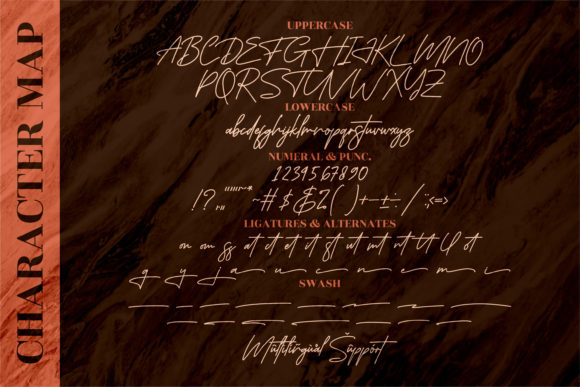 CHARACTER MAP
UPPERCASE
ABCDEFGHIJKLMNO
PQRSTUVWXYZ
LOWERCASE
abcdefghijklmnopqrstuvwxyz
NUMERAL & PUNC.
1234567890
LIGATURES & ALTERNATES
on om ss at et ot it st ut mt nt tt ll ot
g y j a u c n e m i
SWASH
Multilingüal Šüpport